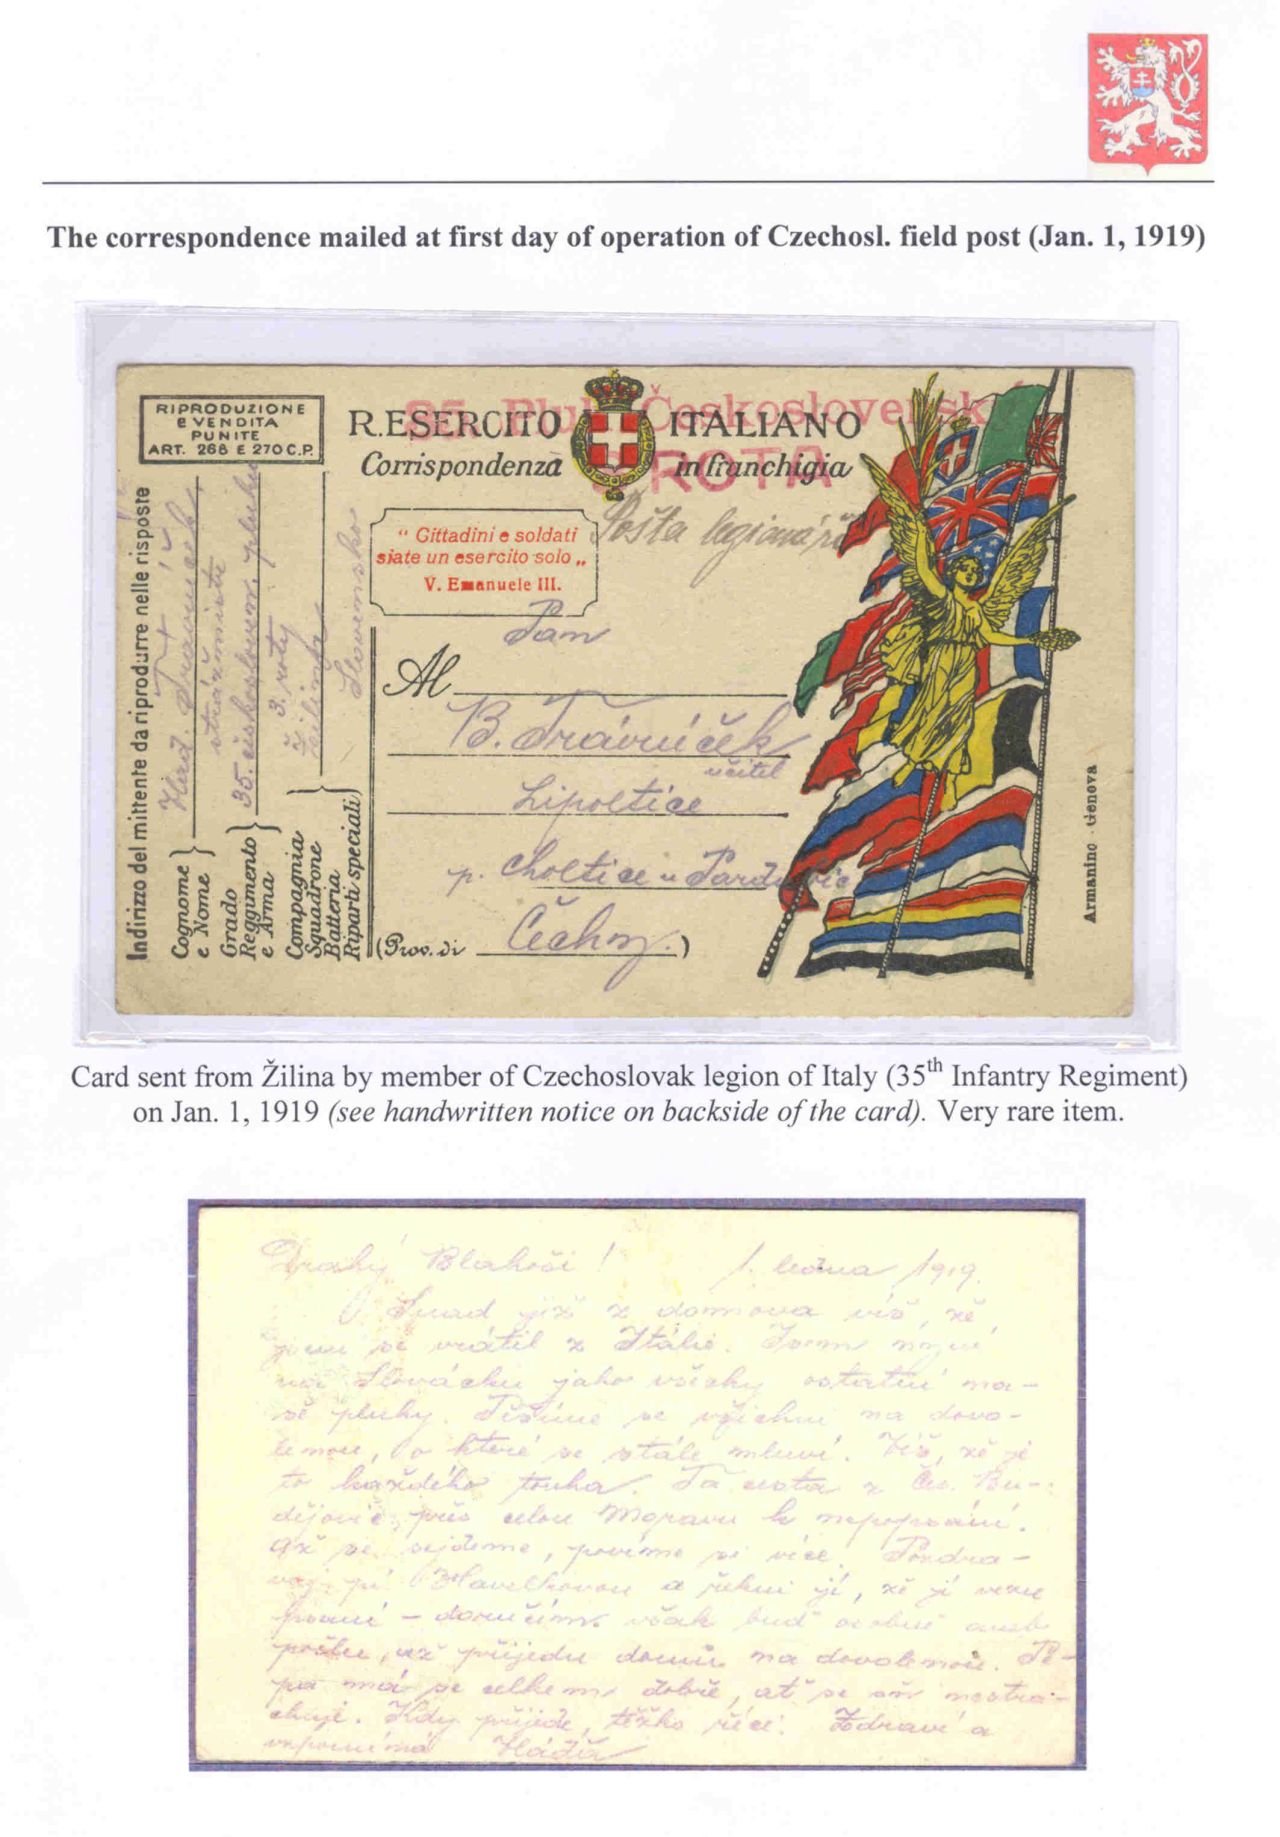 The correspondence mailed at first day of operation of Czechosl. field post (Jan. 1, 1919)
RIPRODUZIONE
E VENDITA
PUNITE
ART. 268 E 270 C.P.
R. ESERCITO ITALIANO
35. Pluk Československý
Corrispondenza in franchigia
ROTA
Pošta legionářů
" Cittadini e soldati
siate un esercito solo „
V. Emanuele III.
Pan
Al
B. Trávníček
učitel
Lipoltice
p. Choltice u Pardubic
(Prov. di Čechy.)
Indirizzo del mittente da riprodurre nelle risposte
Cognome
e Nome
Grado
Reggimento
e Arma
Compagnia
Squadrone
Batteria
Riparti speciali
Trávníček
35. českosloven. pluku
3. roty
Žilina
Slovensko
Armanino - Genova
Card sent from Žilina by member of Czechoslovak legion of Italy (35th Infantry Regiment)
on Jan. 1, 1919 (see handwritten notice on backside of the card). Very rare item.
Drahý ! 1. ledna 1919.
Snad již z domova víš, že
jsem se vrátil z Itálie. Jsem nyní
na Slovácku jako všichny ostatní na-
še pluky. Těšíme se všichni na dovo-
lenou, o které se stále mluví. Víš, že je
to každého touha. Ta cesta z Čes. Bu-
dějovic přes celou Moravu k nepopsání.
Až se sejdeme, povíme si více. Pozdra-
vuj sl. Havelkovou a řekni jí, že jí vezu
psaní – doručím však buď osobně aneb
pošlu, až přijedu domů na dovolenou. Pe-
pa má se celkem dobře, ať se oň nestra-
chují. Kdy přijede, těžko říci. Zdraví a
vzpomíná Háďa